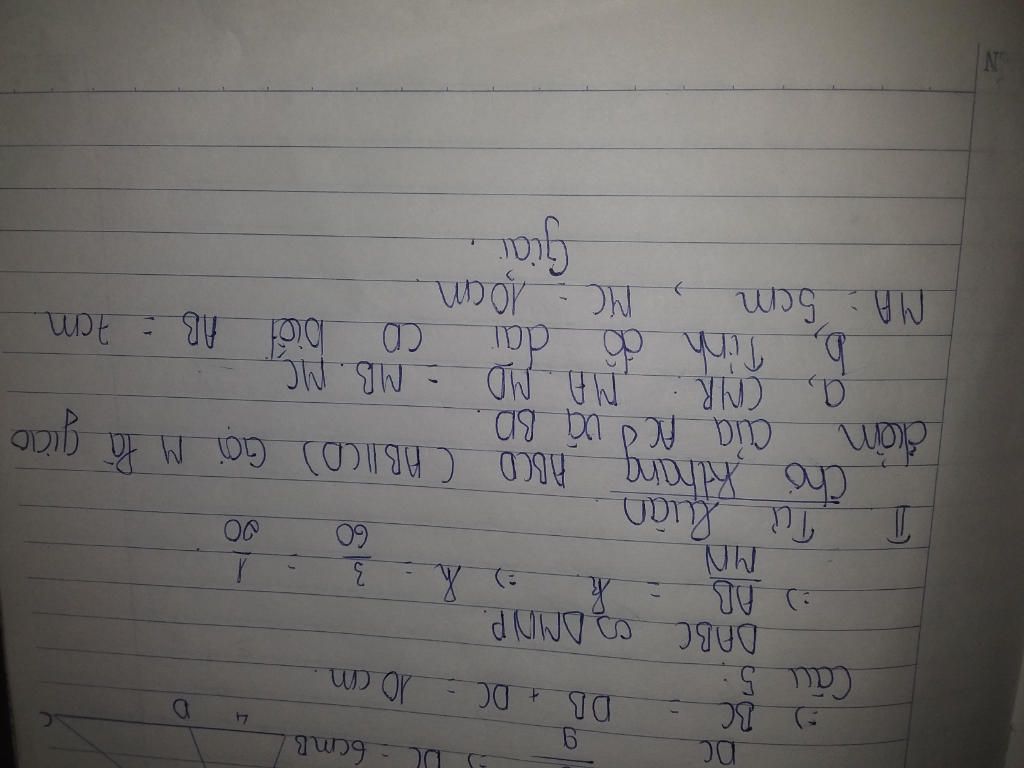 DC 9 => DC = 6cm B 4 D C
=> BC = DB + DC = 10 cm.
Câu 5:
ΔABC ∽ ΔMNP
=> AB/MN = k => k = 3/60 = 1/20.
II Tự Luận
Cho hthang ABCD (AB//CD) Gọi M là giao
điểm của AC và BD.
a, CMR: MA. MD = MB. MC
b, Tính độ dài CD biết AB = 7cm
MA = 5cm, MC = 10cm.
Giải.